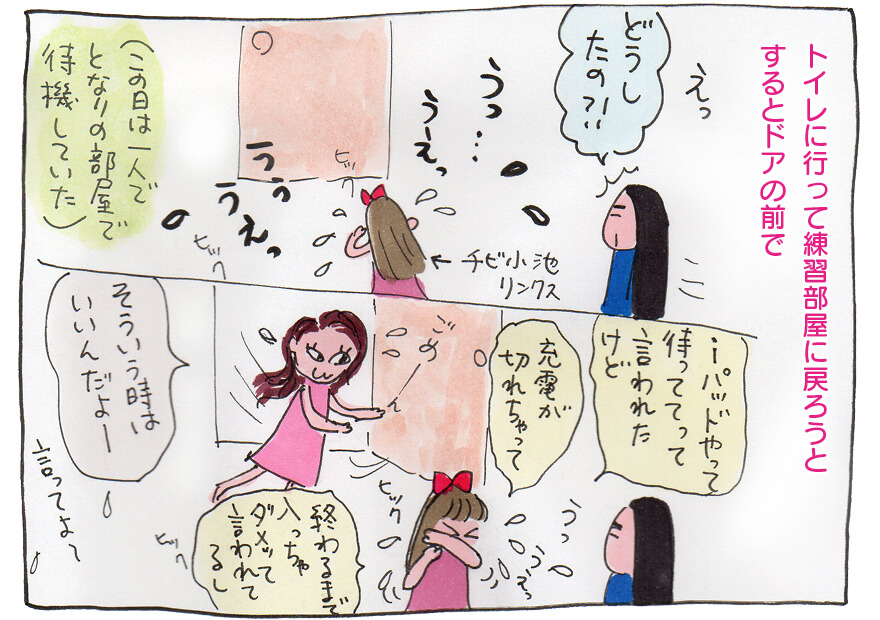 トイレに行って練習部屋に戻ろうと
するとドアの前で
えっ
どうし
たの?!!
うっ…
うーえっ
ヒック
うぅ
うえっ
ヒック
←チビ小池
リンクス
(この日は一人で
となりの部屋で
待機していた)
iパッドやって
待っててって
言われた
けど
充電が
切れちゃって
うっ
うえっ
ヒック
終わるまで
入っちゃ
ダメッて
言われて
るし
ヒック
ごめーん
そういう時は
いいんだよー
言ってよ〜